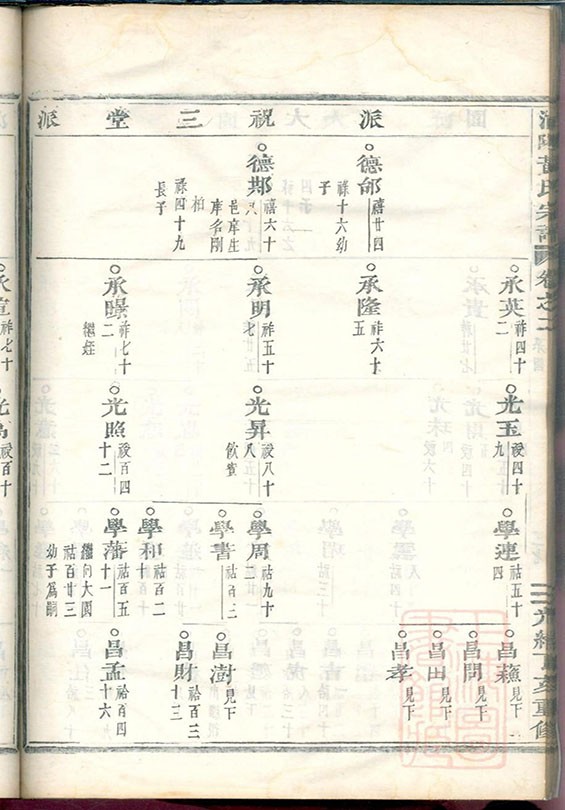 氏宗譜
卷之二
光緒
重修
派祝三堂派
德邰
禧廿四
祥十六幼
子
德邦
禧六十
八
邑庠生
庠名剛
柏
祿四十九
長子
承英
祚四十
二
承隆
祚六十
五
承明
祚五十
七
承曝
祚七十
二
繼姪
承宣
祚七十
光玉
祾四十
九
光昇
祾八十
八
飲賓
光照
祾百四
十二
祾百十
學連
祜五十
四
學周
祜九十
二
學書
祜百二
學和
祜百二
十二
學藩
祜百五
十一
繼向大園
祜百廿三
幼子爲嗣
昌蘓
見下
昌問
見下
昌田
見下
昌孝
見下
昌澍
見下
昌財
祫百二
十三
昌孟
祫百四
十六